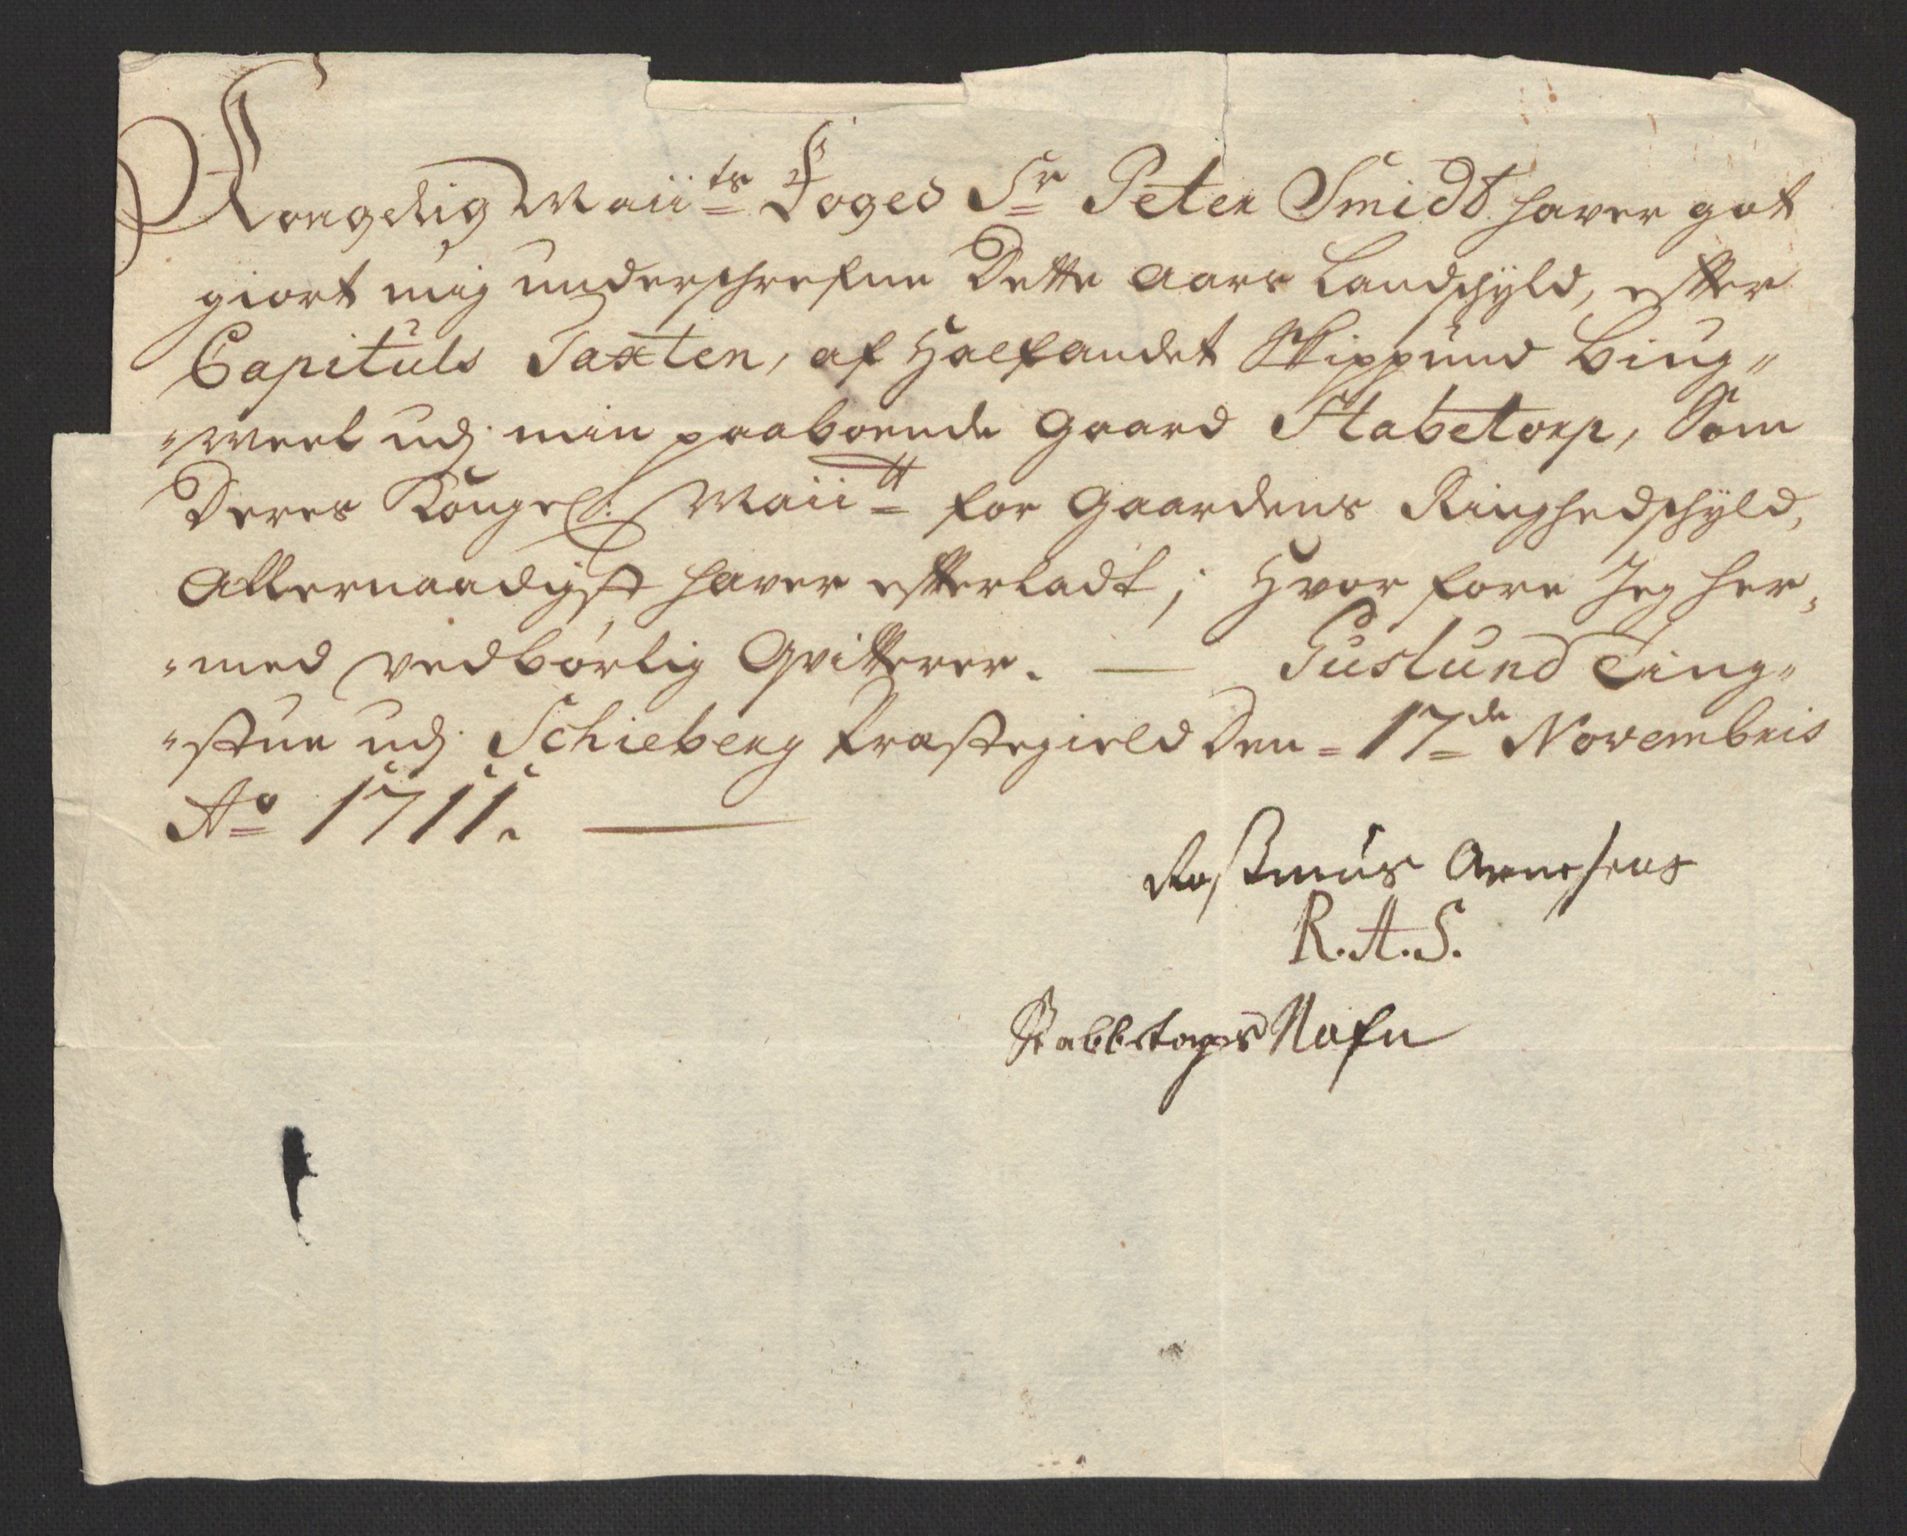 Kongelig Maiits Foged Sr Peter Smidt haver got
giort mig underschrefne Dette Aars Landschyld, efter
Capituls Taxten, af Halfandet Skippund Biug-
-meel udj min paaboende Gaard Stabetorp, Som
Deres Kongel: Maiitt for Gaardens Ringhedschyld,
Allernaadigst haver efterladt; Hvor fore Jeg her-
-med vedbørlig Qvitterer. — Guslund Ting-
-stue udj Schieberg Præstegield Den 17de Novembris
Ao 1711. —
Rasmus Arnesens
R. A. S.
Stabbetorps Nafn